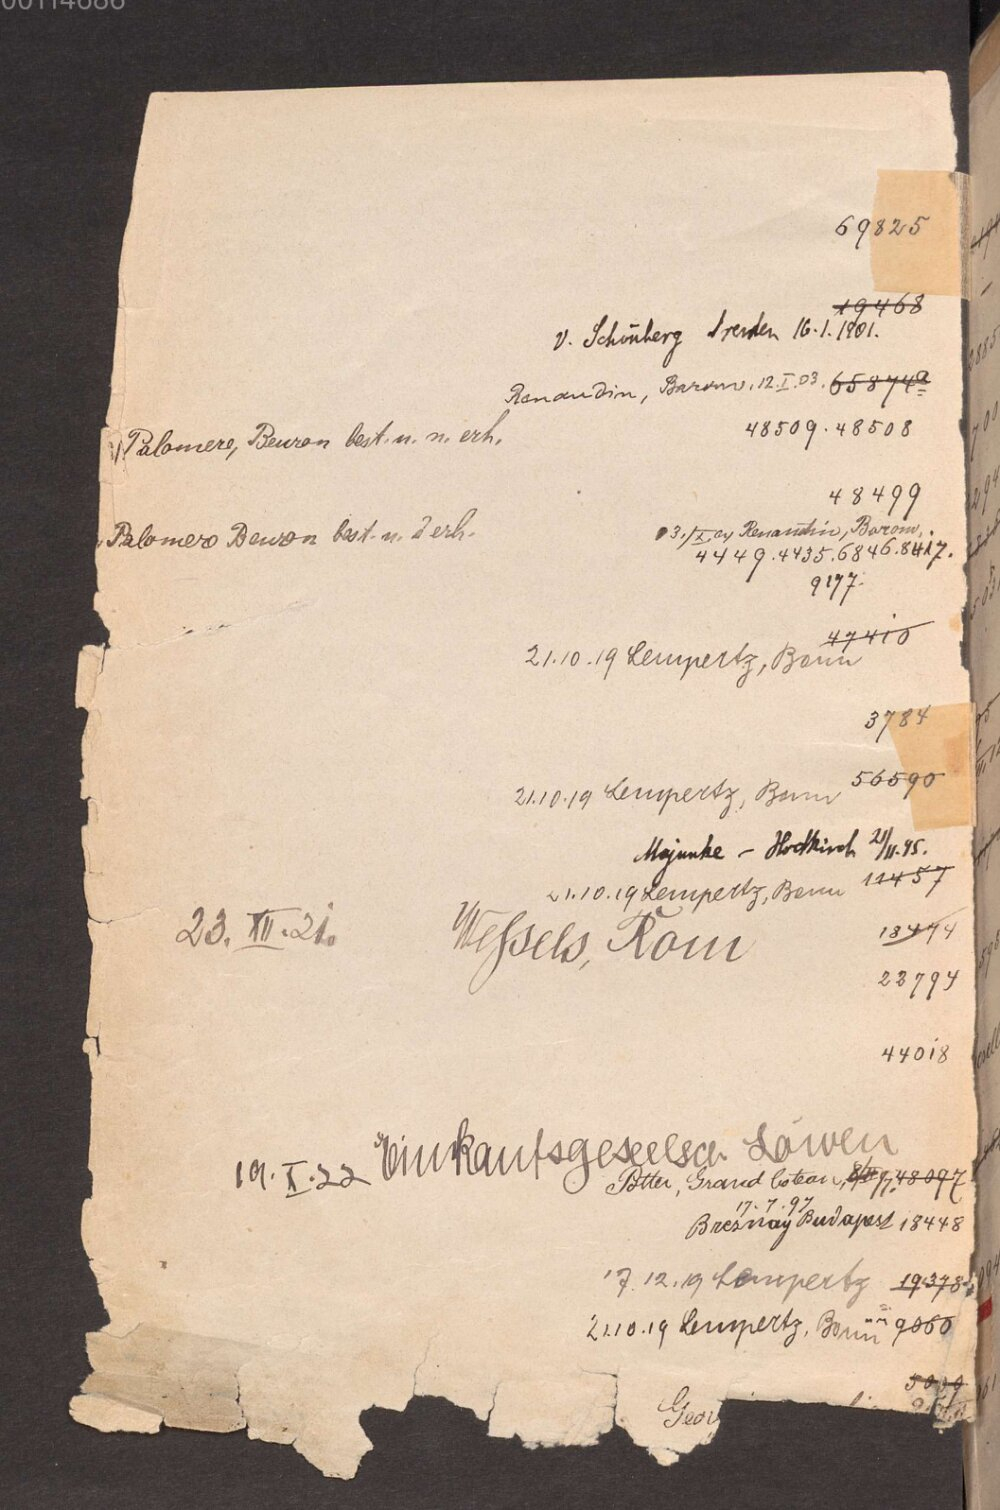 00114686
69825
19468
v. Schönberg Dresden 16.1.1901.
Renaudin, Barom. 12.I.03. 65874a
Palomere, Beuron best. u. n. erh. 48509.48508
48499
Palomero Beuron best. u. erh. 03./X. Renaudin, Barom.
4449.4435.6846.8417.
9177.
47410
21.10.19 Lempertz, Bonn
3784
21.10.19 Lempertz, Bonn 56590
Majunke - Hochkirch 21/11.95.
21.10.19 Lempertz, Bonn 11457
23. XII. 21. Wessels, Rom 13474
22794
44018
19. X. 22 Einkaufsgesellsch Löwen
Potter, Grand Coteau, 97. 48097
17.7.97
Bresnay Budapest 18448
17.12.19 Lempertz 19378
21.10.19 Lempertz, Bonn 9060
5009